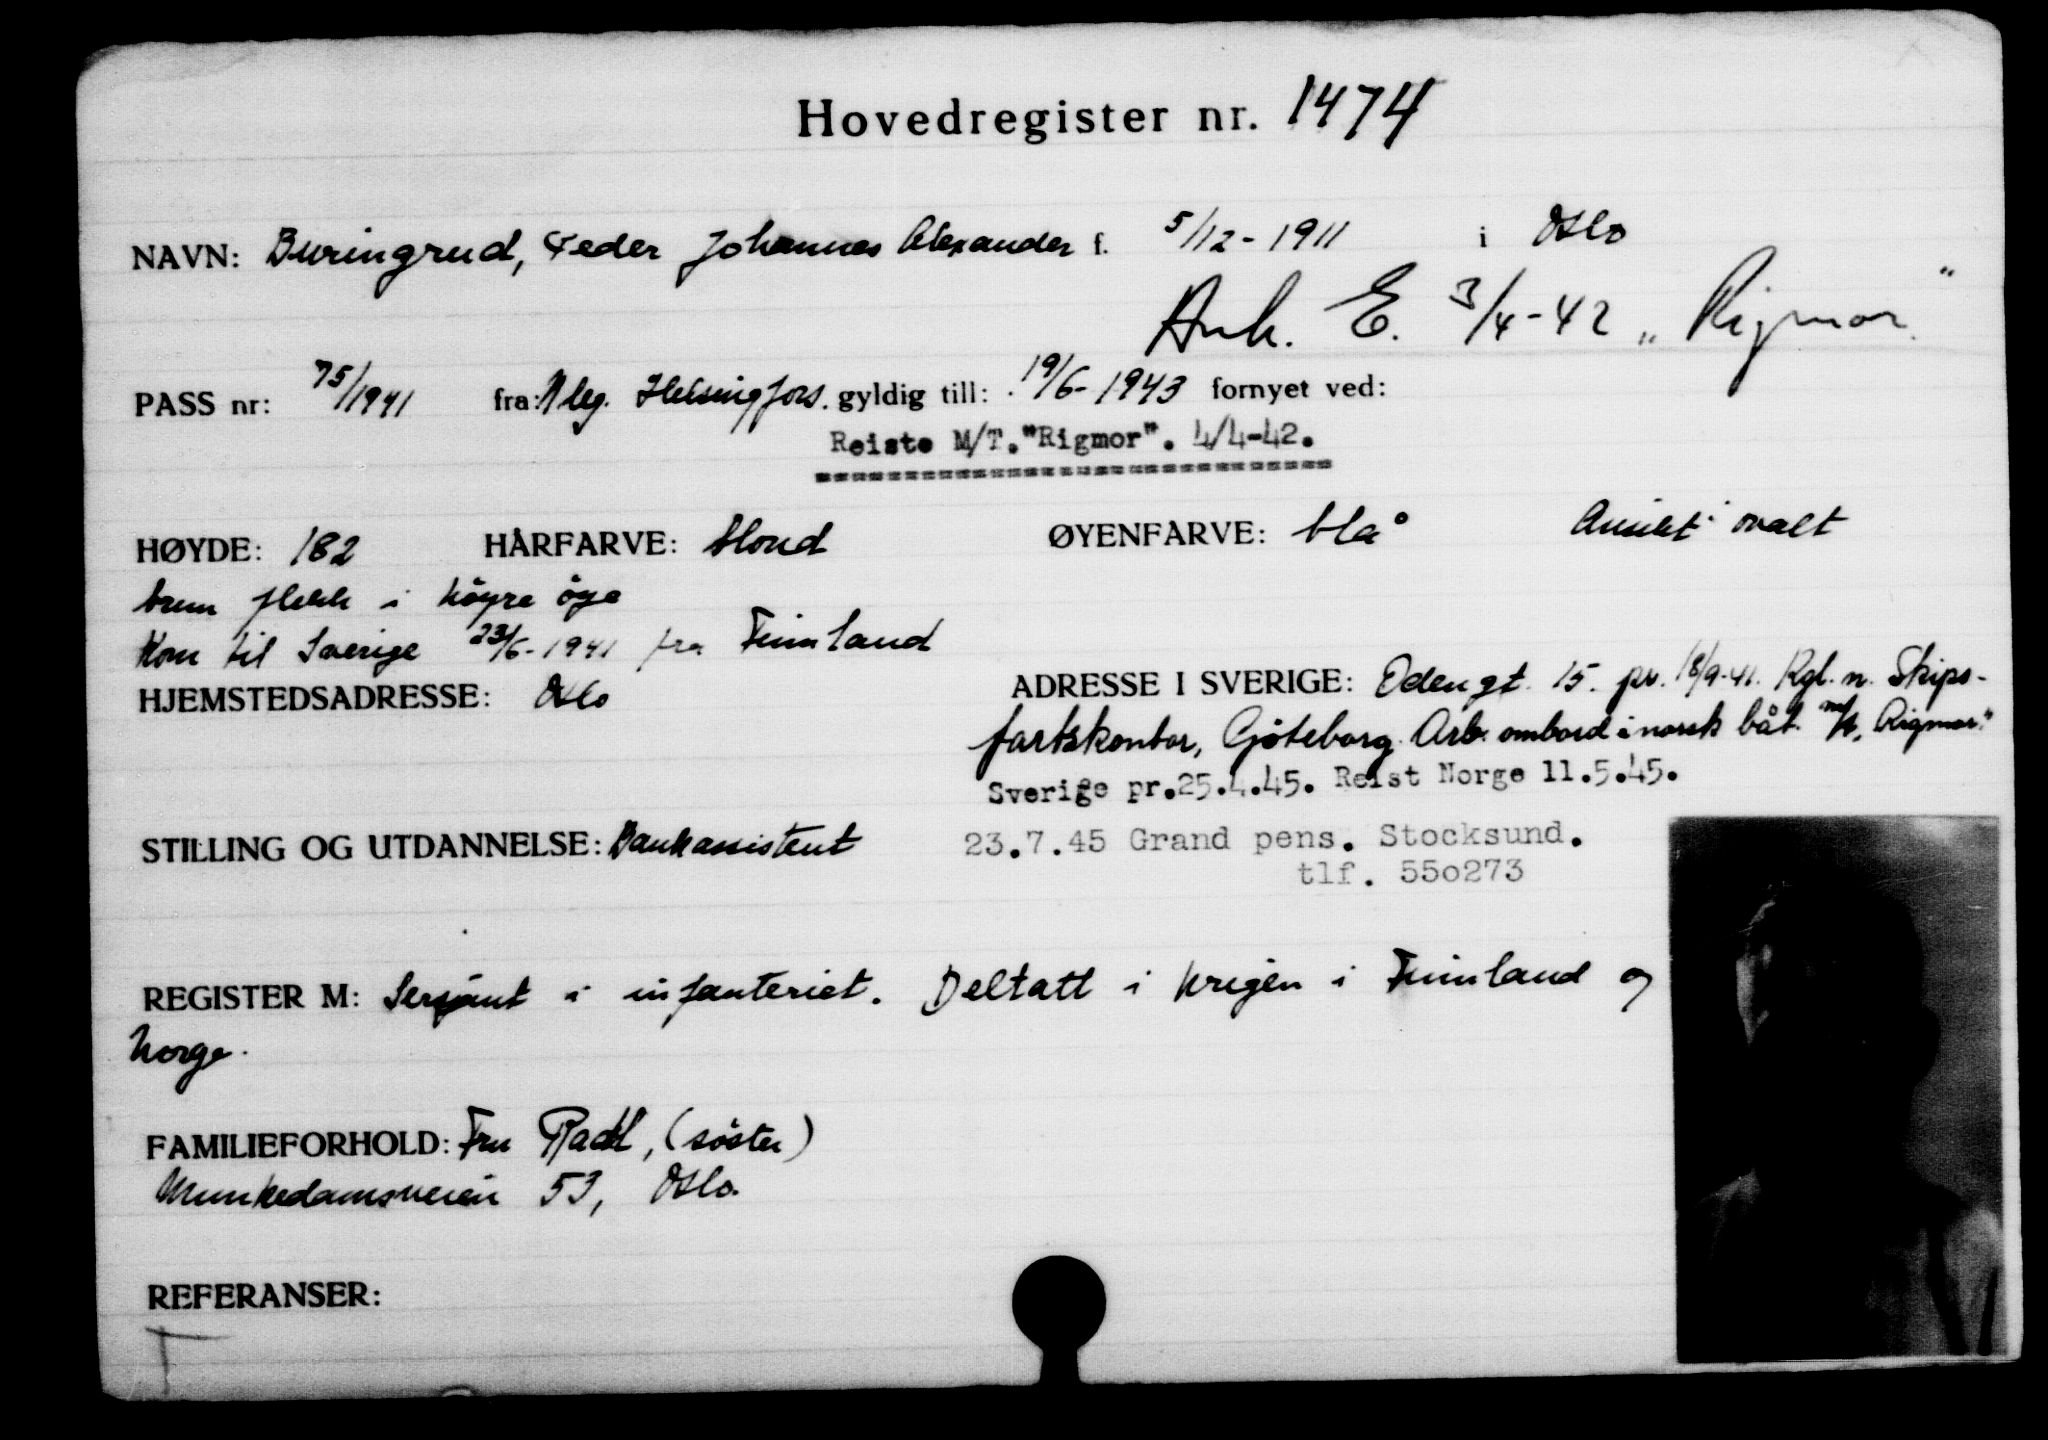 Hovedregister nr. 1474
NAVN: Buringrud, Peder Johannes Alexander f. 5/12-1911 i Oslo
Ank. E. 3/4-42 „Rigmor"
PASS nr: 75/1941 fra: N leg. Helsingfors. gyldig till: 19/6-1943 fornyet ved:
Reiste M/T."Rigmor". 4/4-42.
HØYDE: 182 HÅRFARVE: blond ØYENFARVE: blå Ansikt: ovalt
brun flekk i höyre öye
Kom til Sverige 23/6-1941 fra Finnland
HJEMSTEDSADRESSE: Oslo
ADRESSE I SVERIGE: Odengt. 15. pr. 18/9-41. Kgl. n. Skips-
fartskontor, Göteborg. Arb. ombord i norsk båt m/t „Rigmor"
Sverige pr.25.4.45. Reist Norge 11.5.45.
STILLING OG UTDANNELSE: Bankassistent
23.7.45 Grand pens. Stocksund.
tlf. 55o273
REGISTER M: Sersjant i infanteriet. Deltatt i krigen i Finnland og
Norge.
FAMILIEFORHOLD: Fru (söster)
Munkedamsveien 53, Oslo.
REFERANSER: